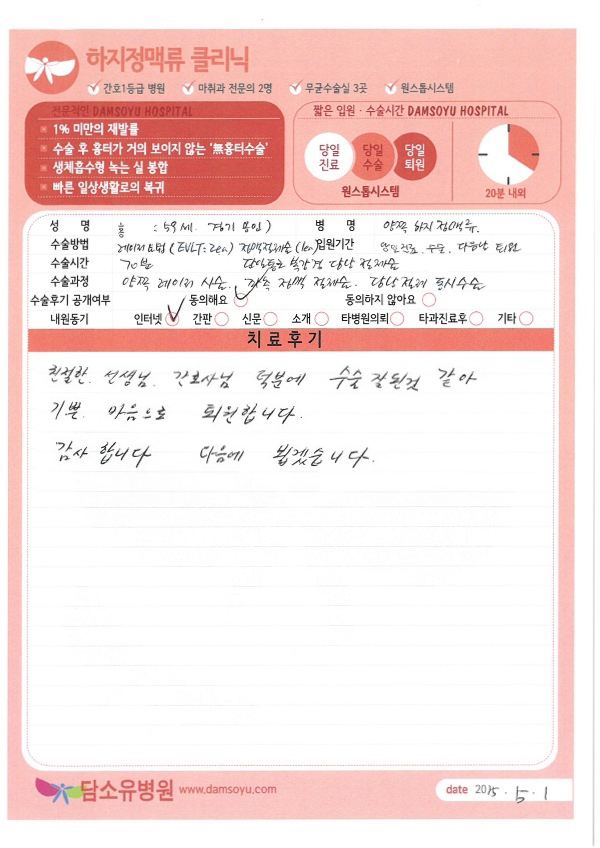 하지정맥류 클리닉
간호1등급 병원 마취과 전문의 2명 무균수술실 3곳 원스톱시스템
전문적인 DAMSOYU HOSPITAL
1% 미만의 재발률
수술 후 흉터가 거의 보이지 않는 '無흉터수술'
생체흡수형 녹는 실 봉합
빠른 일상생활로의 복귀
짧은 입원 · 수술시간 DAMSOYU HOSPITAL
당일 진료
당일 수술
당일 퇴원
원스톱시스템
20분 내외
성 명 홍 : 59세. 경기 용인) 병 명 양쪽 하지정맥류.
수술방법 레이저요법 (EVLT: 2ea) 정맥절제술 (1ea) 입원기간 당일진료. 수술. 다음날 퇴원
수술시간 70분
수술과정 양쪽 레이저 시술. 정맥 절제술.
수술후기 공개여부 동의해요 동의하지 않아요
내원동기 인터넷 간판 신문 소개 타병원의뢰 타과진료후 기타
치료후기
친절한. 선생님. 간호사님 덕분에 수술 잘된것 같아
기쁜. 마음으로 퇴원합니다.
감사 합니다 다음에 뵙겠습니다.
담소유병원 www.damsoyu.com
date 2015. 5. 1